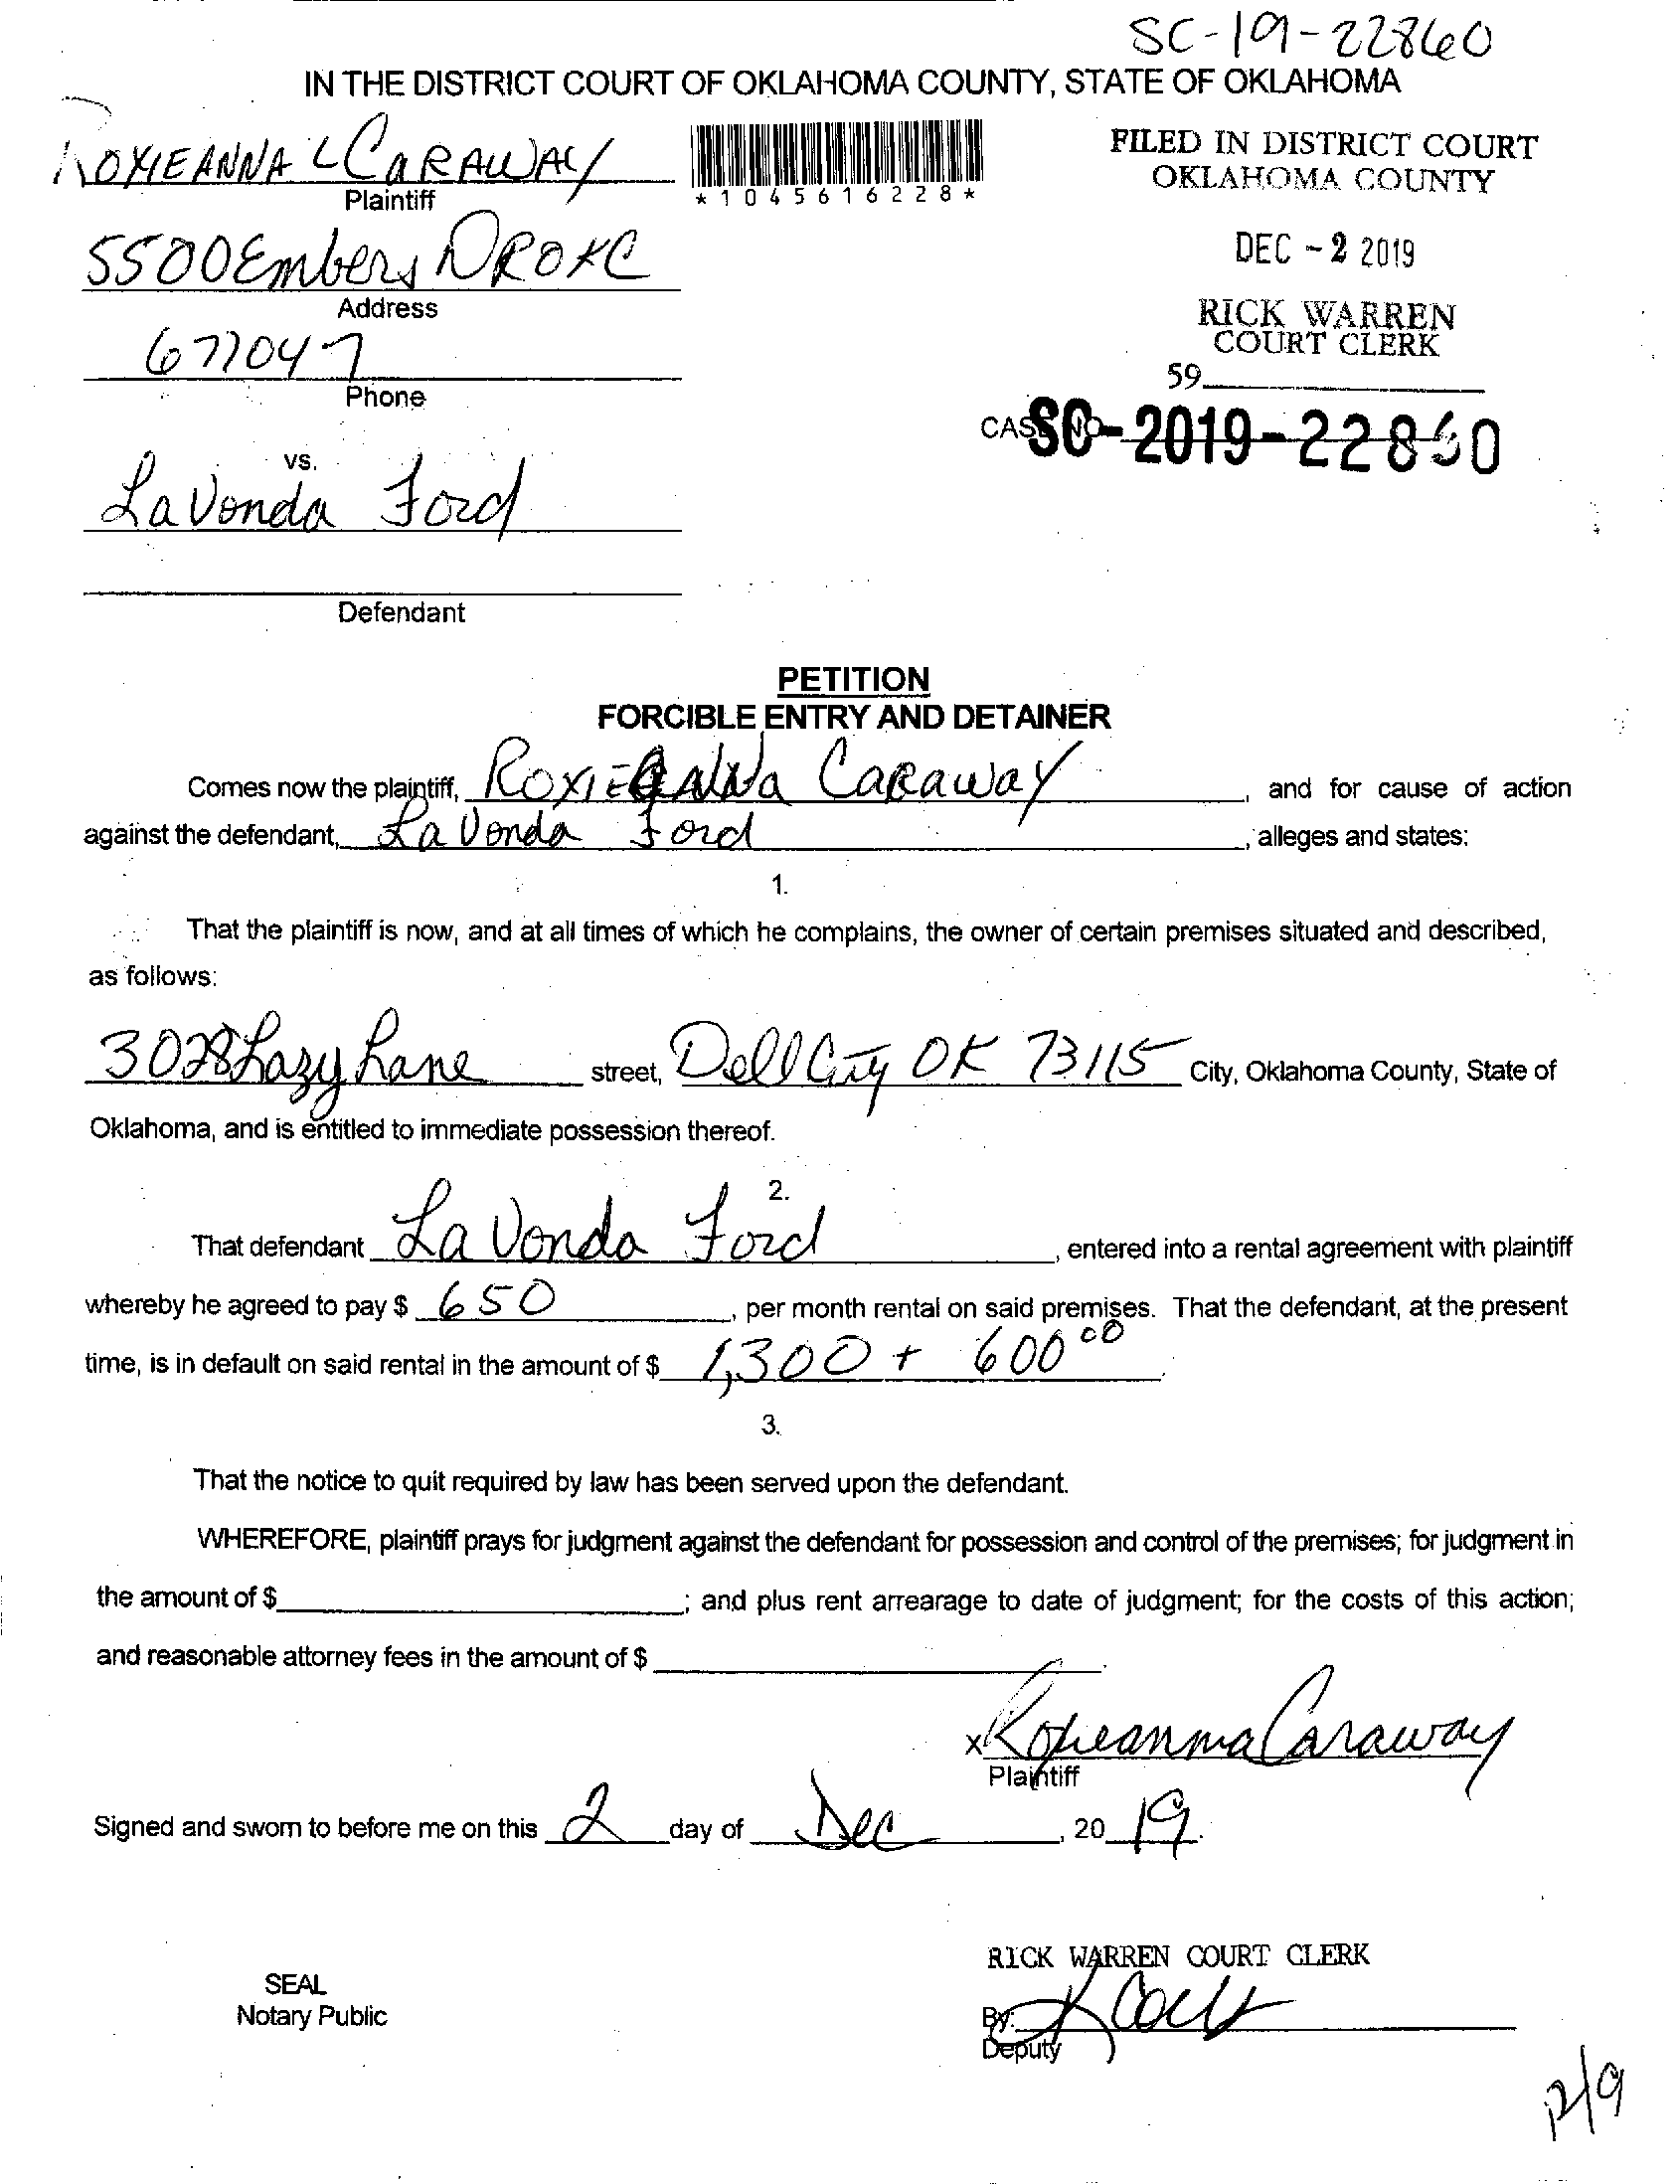 SC-19-22860
IN THE DISTRICT COURT OF OKLAHOMA COUNTY, STATE OF OKLAHOMA
ROXIEANNA L CARAWAY
Plaintiff
*1045616228*
FILED IN DISTRICT COURT
OKLAHOMA COUNTY
DEC - 2 2019
RICK WARREN
COURT CLERK
59
5500 Embers DR OKC
Address
6777047
Phone
CASE NO SC-2019-22860
vs.
LaVonda Ford
Defendant
PETITION
FORCIBLE ENTRY AND DETAINER
Comes now the plaintiff, RoxiEanna Caraway, and for cause of action
against the defendant, LaVonda Ford, alleges and states:
1.
That the plaintiff is now, and at all times of which he complains, the owner of certain premises situated and described,
as follows:
3028 Lazy Lane street, Dell City OK 73115 City, Oklahoma County, State of
Oklahoma, and is entitled to immediate possession thereof.
2.
That defendant LaVonda Ford, entered into a rental agreement with plaintiff
whereby he agreed to pay $ 650, per month rental on said premises. That the defendant, at the present
time, is in default on said rental in the amount of $ 1,300 + 600 00.
3.
That the notice to quit required by law has been served upon the defendant.
WHEREFORE, plaintiff prays for judgment against the defendant for possession and control of the premises; for judgment in
the amount of $; and plus rent arrearage to date of judgment; for the costs of this action;
and reasonable attorney fees in the amount of $.
x Roxieanna Caraway
Plaintiff
Signed and sworn to before me on this 2 day of Dec, 20 19.
RICK WARREN COURT CLERK
SEAL
Notary Public
By:
Deputy
12/9